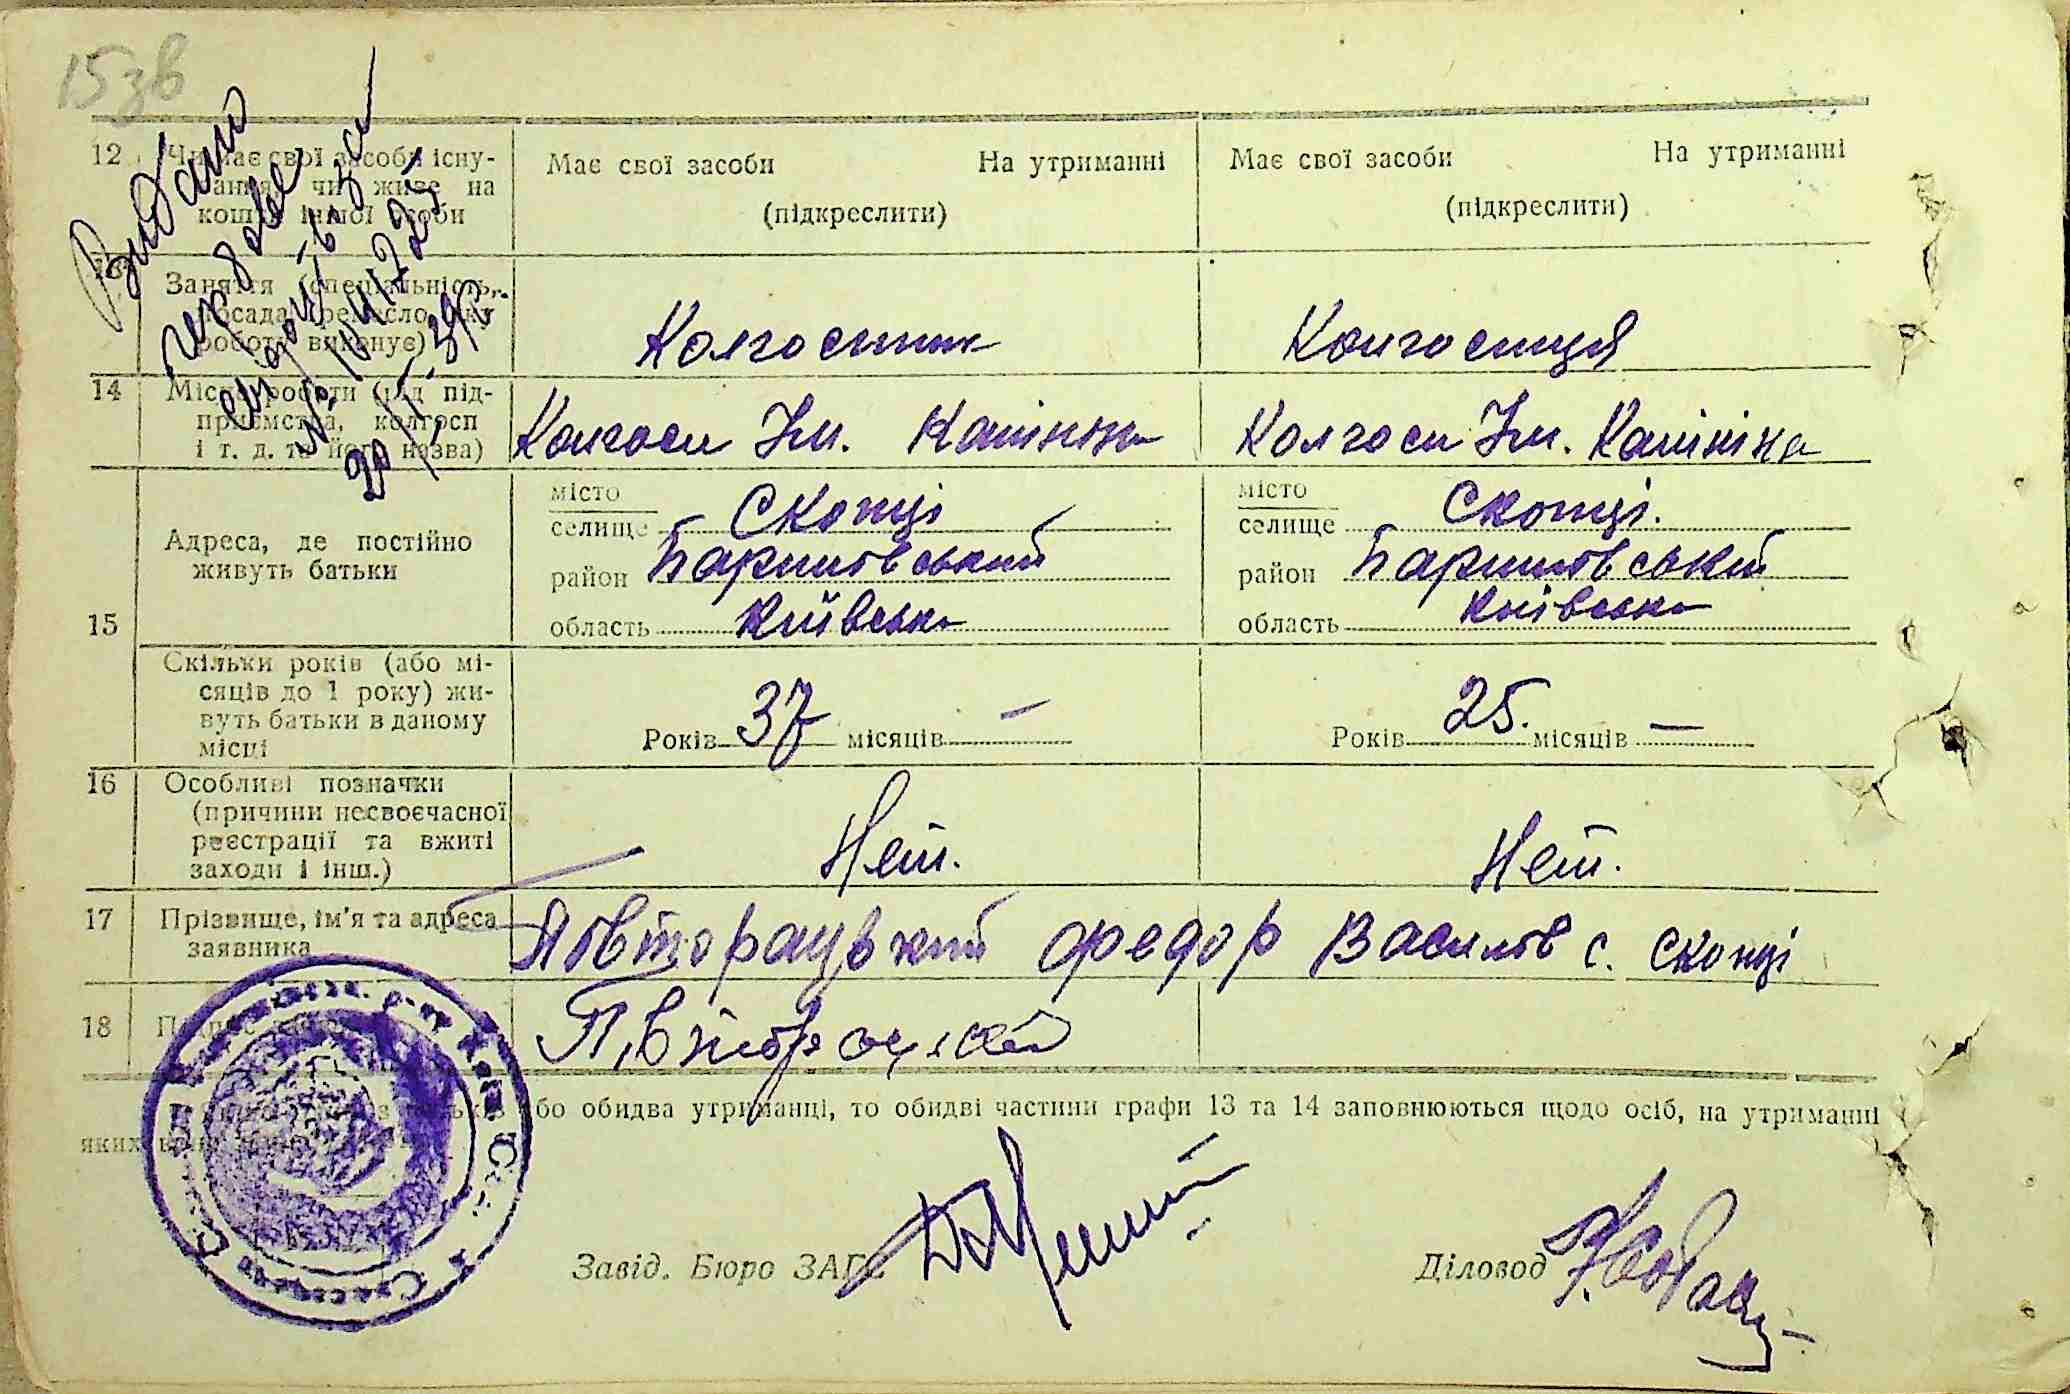 15зв
Видано
чергове
свідоцтво за
20/II-39р.
12 Чи має свої засоби існу-
вання, чи живе на
кошти іншої особи
Має свої засоби На утриманні
(підкреслити)
Має свої засоби На утриманні
(підкреслити)
13 Заняття (спеціальність,
посада, ремесло, яку
роботу виконує)
Колгоспник
Колгоспиця
14 Місце роботи (рід під-
приємства, колгосп
і т. д. та його назва)
Колгосп Ім. Калініна
Колгосп Ім. Калініна
15 Адреса, де постійно
живуть батьки
місто
селище Скопці
район Баришовський
область Київська
місто
селище Скопці.
район Баришовський
область Київська
Скільки років (або мі-
сяців до 1 року) жи-
вуть батьки в даному
місці
Років 37 місяців —
Років 25. місяців —
16 Особливі позначки
(причини несвоєчасної
реєстрації та вжиті
заходи і інш.)
Нет.
Нет.
17 Прізвище, ім'я та адреса
заявника
Повторацький Федор Василов с. Скопці
18
або обидва утриманці, то обидві частини графи 13 та 14 заповнюються щодо осіб, на утриманні
яких
Завід. Бюро ЗАГС
Діловод